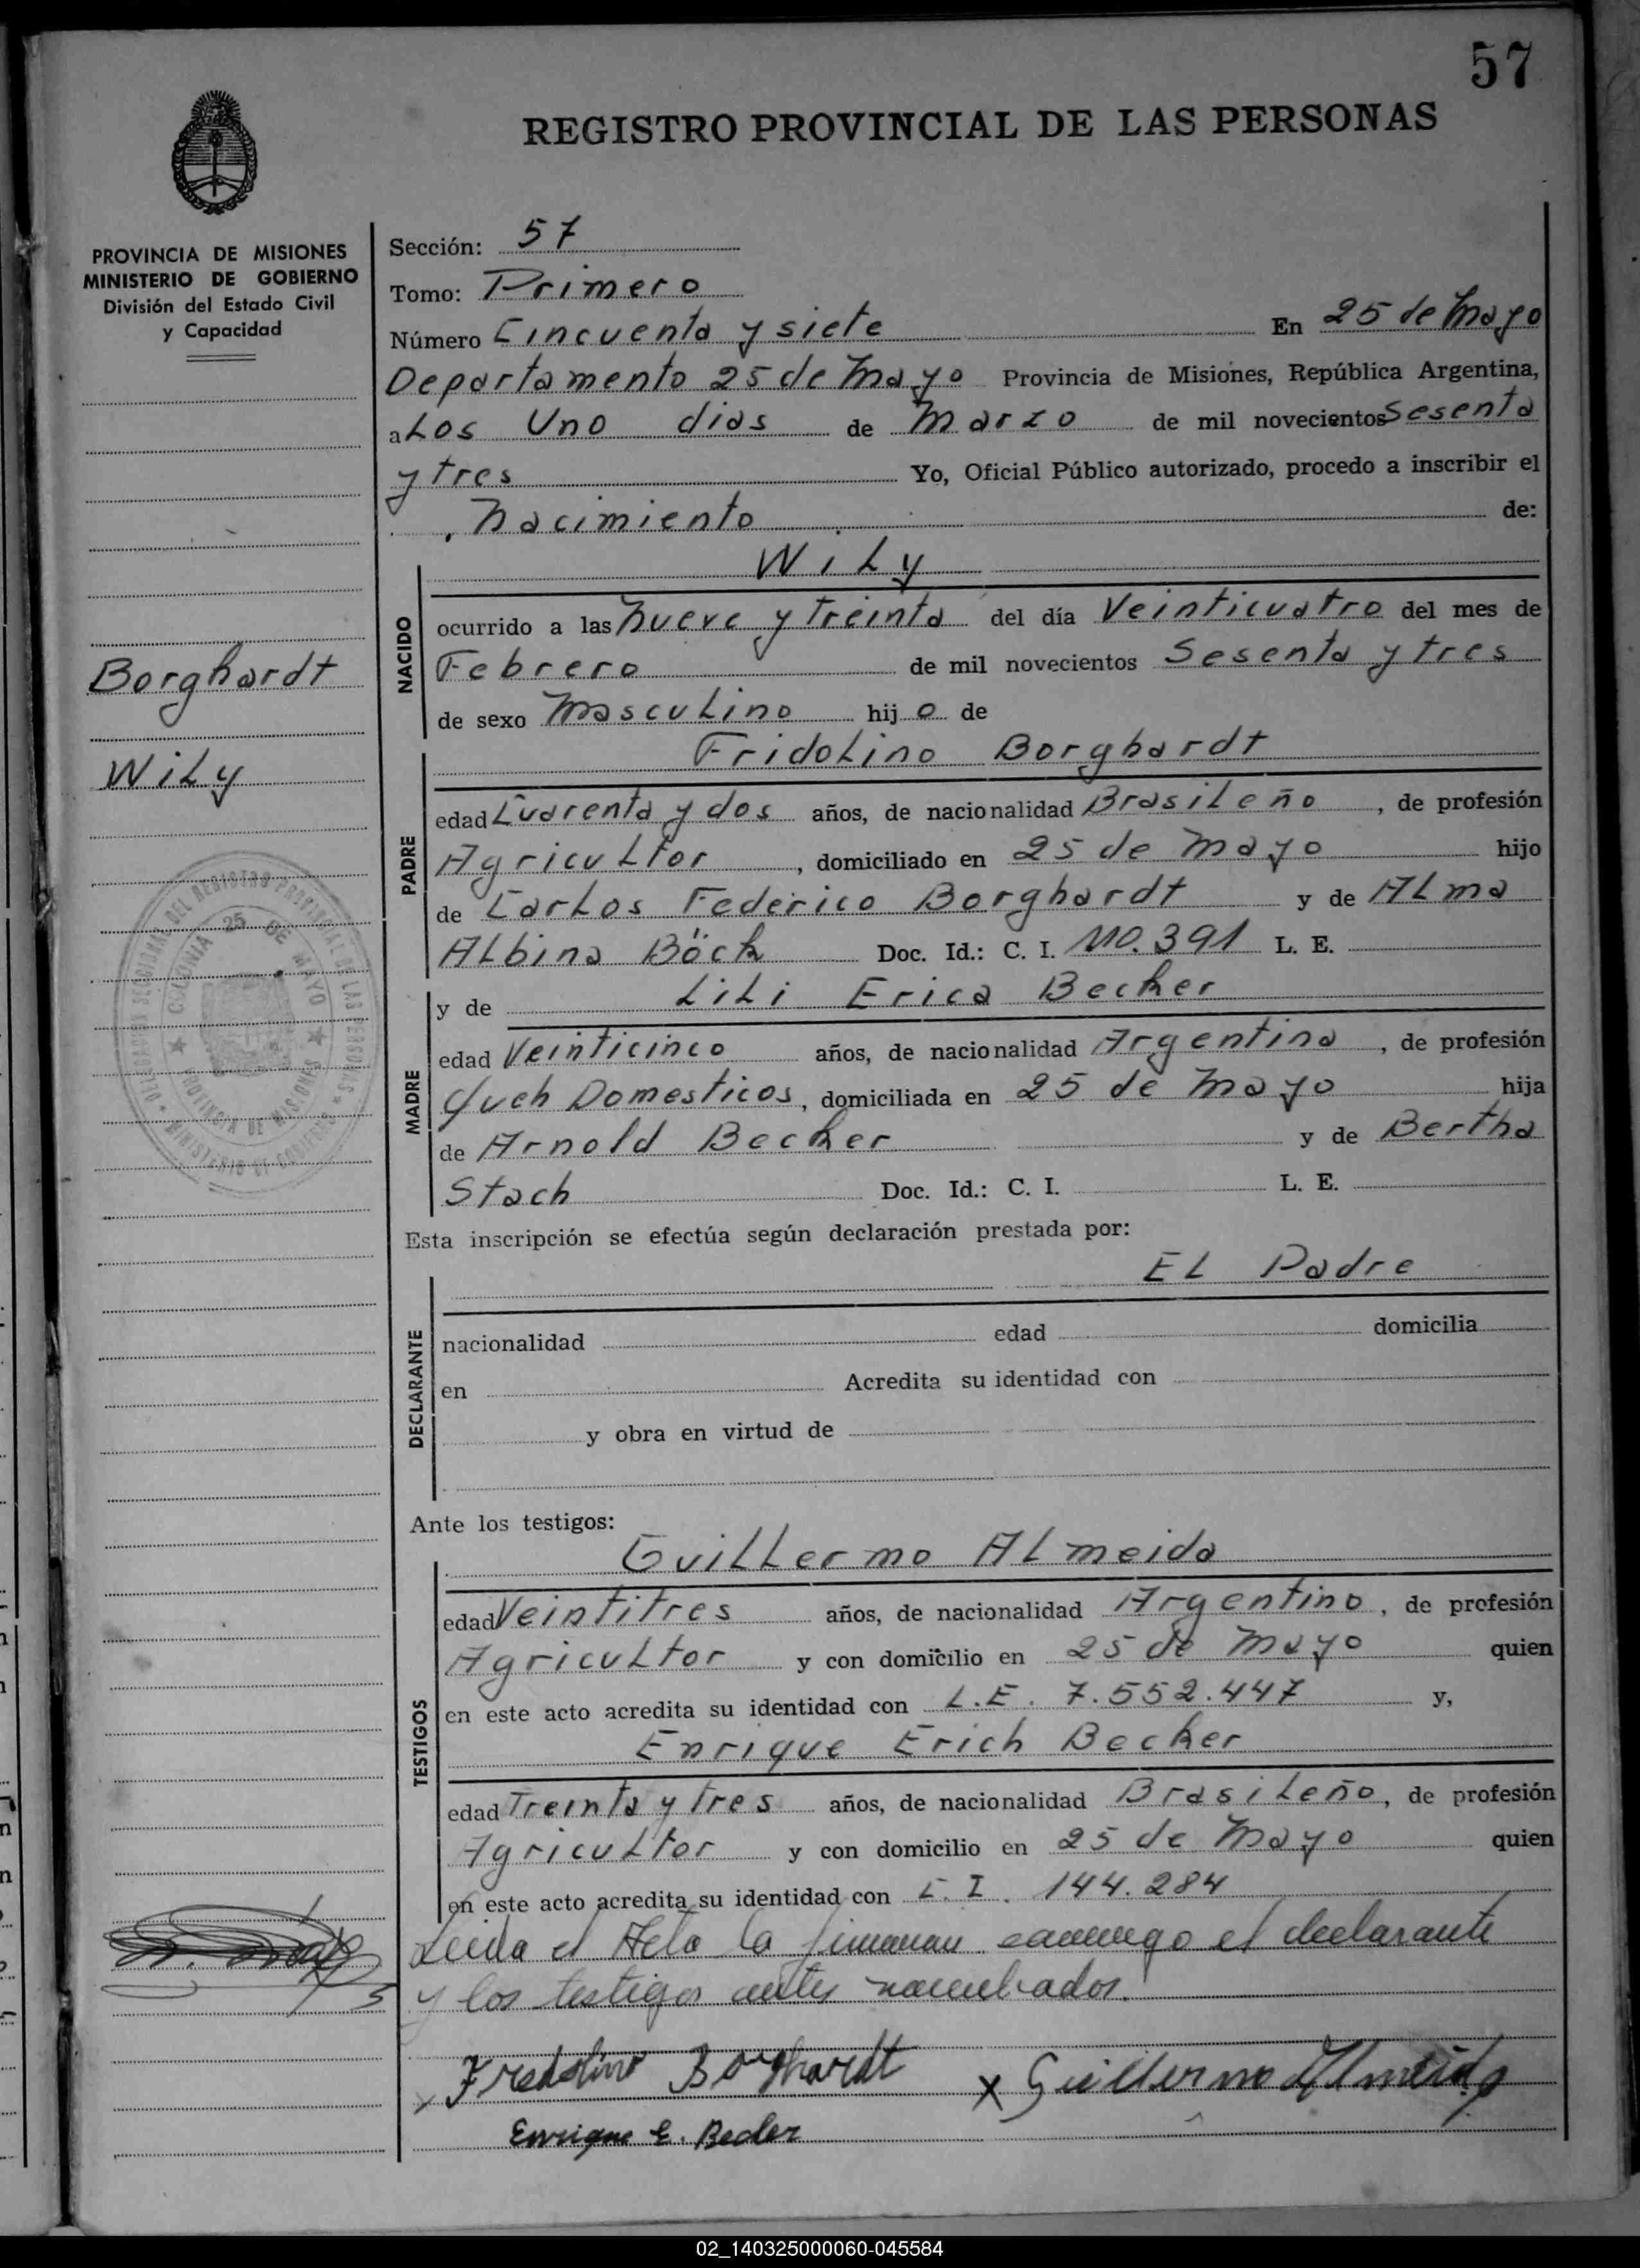 57
REGISTRO PROVINCIAL DE LAS PERSONAS
PROVINCIA DE MISIONES
MINISTERIO DE GOBIERNO
División del Estado Civil
y Capacidad
Borghardt
Wily
DELEGACION SECCIONAL DEL REGISTRO PROVINCIAL DE LAS PERSONAS
COLONIA 25 DE MAYO
PROVINCIA DE MISIONES
MINISTERIO DE GOBIERNO
Sección: 57
Tomo: Primero
Número Cincuenta y siete En 25 de Mayo
Departamento 25 de Mayo Provincia de Misiones, República Argentina,
a Los Uno dias de Marzo de mil novecientos Sesenta
y tres Yo, Oficial Público autorizado, procedo a inscribir el
Nacimiento de:
NACIDO
Wily
ocurrido a las Nueve y treinta del día Veinticuatro del mes de
Febrero de mil novecientos Sesenta y tres
de sexo Masculino hijo de
PADRE
Fridolino Borghardt
edad Cuarenta y dos años, de nacionalidad Brasileño, de profesión
Agricultor, domiciliado en 25 de Mayo hijo
de Carlos Federico Borghardt y de Alma
Albina Böck Doc. Id.: C. I. 110.391 L. E.
MADRE
y de Lili Erica Becker
edad Veinticinco años, de nacionalidad Argentina, de profesión
Queh Domesticos, domiciliada en 25 de Mayo hija
de Arnold Becker y de Bertha
Stach Doc. Id.: C. I. L. E.
Esta inscripción se efectúa según declaración prestada por:
El Padre
DECLARANTE
nacionalidad edad domicilia
en Acredita su identidad con
y obra en virtud de
Ante los testigos:
TESTIGOS
Guillermo Almeida
edad Veintitres años, de nacionalidad Argentino, de profesión
Agricultor y con domicilio en 25 de Mayo quien
en este acto acredita su identidad con L.E. 7.552.447 y,
Enrique Erich Becker
edad Treinta y tres años, de nacionalidad Brasileño, de profesión
Agricultor y con domicilio en 25 de Mayo quien
en este acto acredita su identidad con C. I. 144.284
Leida el Acta la firman conmigo el declarante
y los testigos antes nombrados.
Fredolino Borghardt x Guillermo Almeida
Enrique E. Becker
02_140325000060-045584